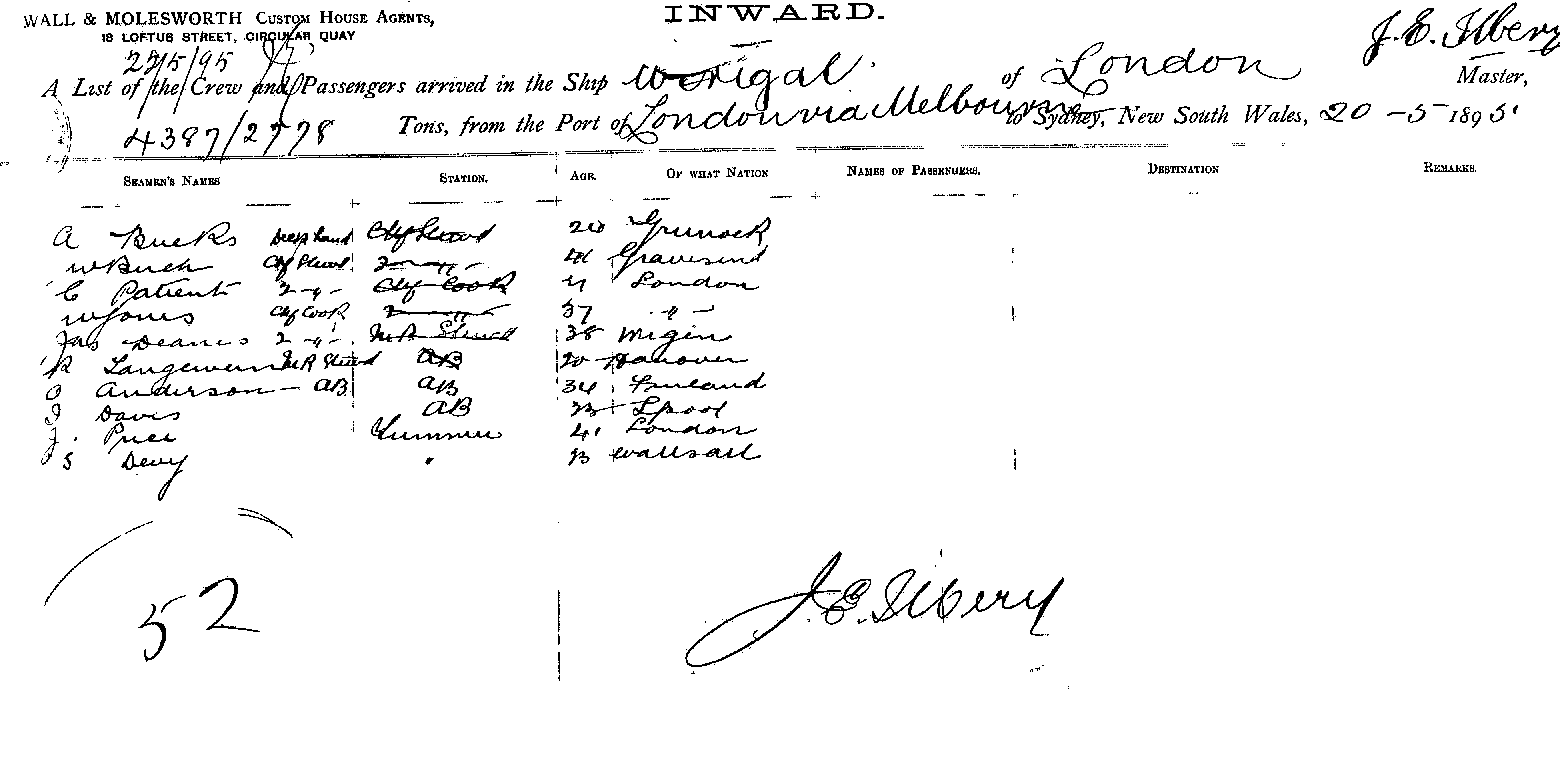 WALL & MOLESWORTH CUSTOM HOUSE AGENTS,
18 LOFTUS STREET, CIRCULAR QUAY
INWARD.
J. E. Ilbery
22/5/95
A List of the Crew and Passengers arrived in the Ship Warrigal of London Master,
4387/2778 Tons, from the Port of London via Melbourne to Sydney, New South Wales, 20-5-1895.
SEAMEN'S NAMES STATION. AGE. OF WHAT NATION NAMES OF PASSENGERS. DESTINATION REMARKS.
A Bucks Chf Steward Greenock
W Buch Chf Stewd 2 -"- Gravesend
C Patient 2 -"- Chf Cook London
W Jones Chf Cook 2 -"- 37 -"-
Jas Deanes 2 -"- M R Stewd 38
R M R Steward AB 20 Hanover
O Anderson - AB AB 34
J Davis AB 23 Lpool
J. Price Trimmer 41 London
S Devy " 23 Walsall
52
J. E. Ilbery